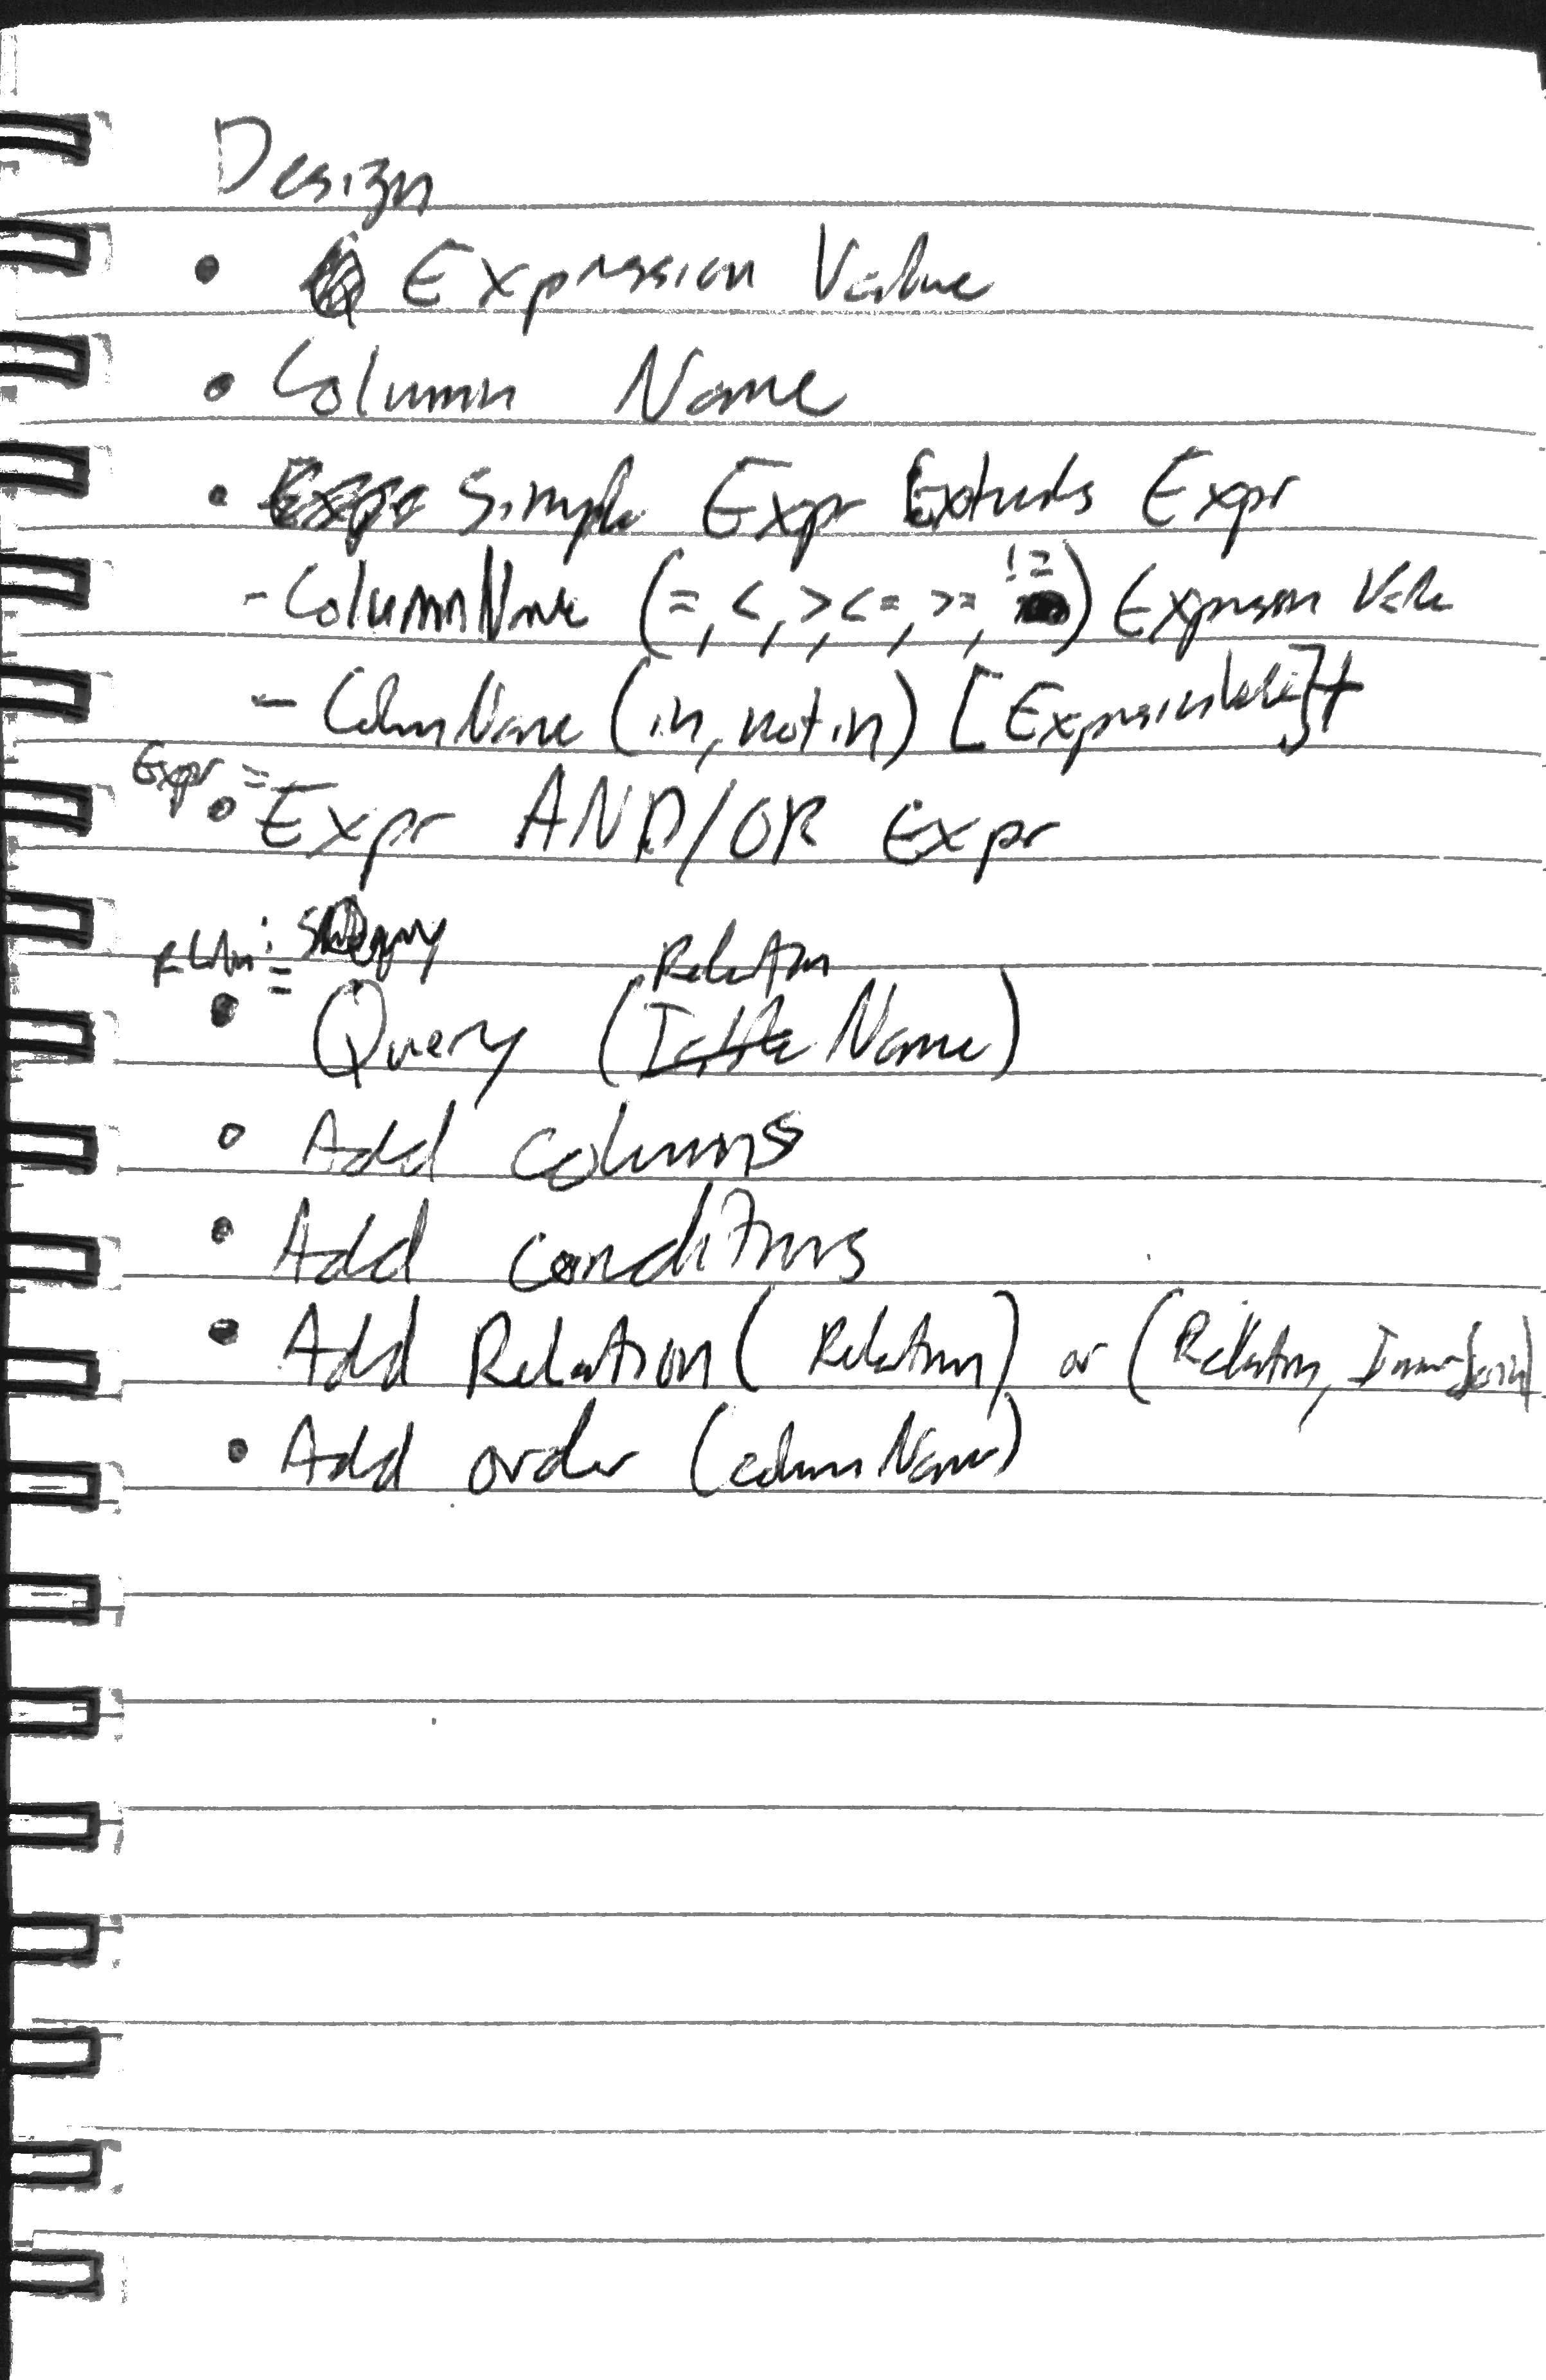 Design
• Expression Value
• Column Name
• Simple Expr Extends Expr
- ColumnName (=, <, >, <=, >=, !=) Expression Value
- ColumnName (in, not in) [ExpressionValue]+
Expr =
• Expr AND/OR Expr
Relation
• Query (Table Name)
• Add columns
• Add conditions
• Add Relation (Relation) or (Relation, InnerJoin)
• Add order (columnName)